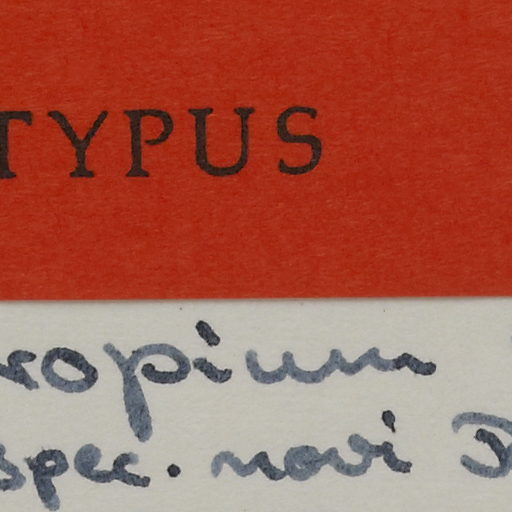 TYPUS
ropium
spec. novi